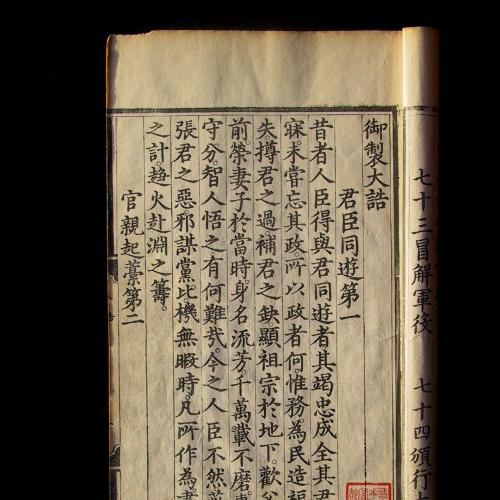 七十三冒解軍役 七十四頒行
御製大誥
君臣同遊第一
昔者人臣得與君同遊者。其竭忠成全其君
寐。未嘗忘其政。所以政者何。惟務為民造福
失。撙君之過。補君之缺。顯祖宗於地下。歡父
前。榮妻子於當時。身名流芳。千萬載不磨。
守分。智人悟之有何難哉。今之人臣不然。
張君之惡。邪謀黨比。機無暇時。凡所作為。
之計。趨火赴淵之籌。
官親起藁第二